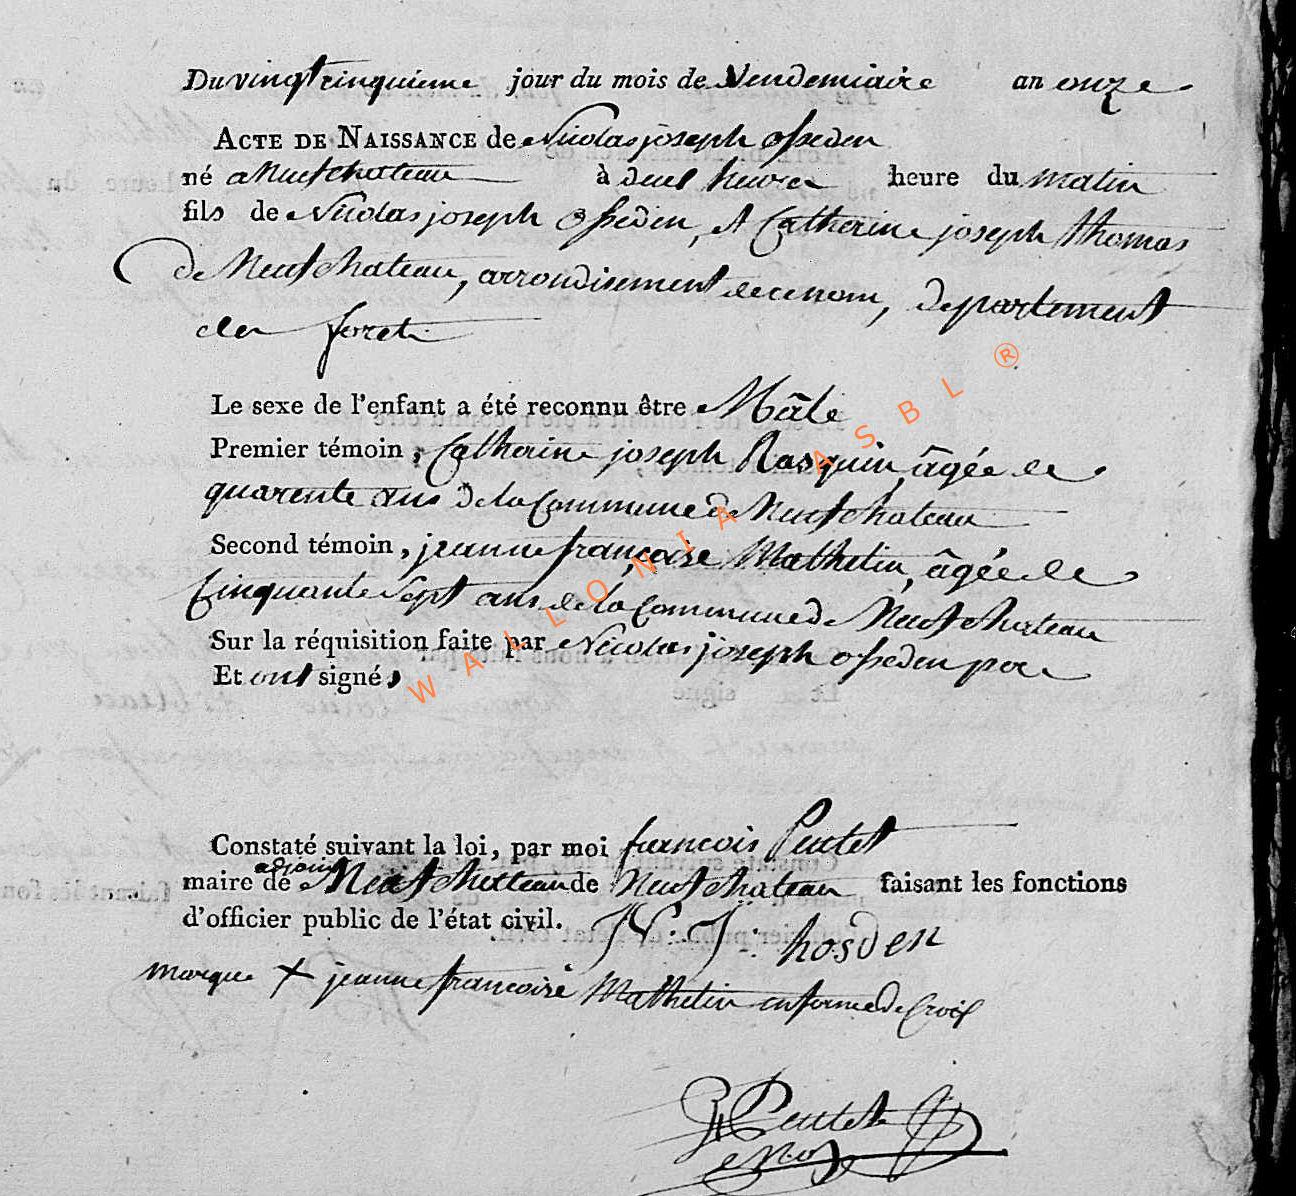 Du vingt cinquieme jour du mois de Vendemiaire an onze
ACTE DE NAISSANCE de Nicolas joseph osseden
né a Neufchateau à deux heures heure du matin
fils de Nicolas joseph osseden, et Catherine joseph thomas
de Neufchateau, arrondisement de ce nom, departement
des foret
Le sexe de l'enfant a été reconnu être Mâle
Premier témoin, Catherine joseph Rasquin, âgée de
quarente ans de la Commune de Neufchateau
Second témoin, jeanne françoise Mathelin, âgée de
Cinquante sept ans de la Commune de Neufchateau
Sur la réquisition faite par Nicolas joseph osseden per
Et ont signé,
WALLONIA ASBL ®
Constaté suivant la loi, par moi francois
adjoint
maire de Neufchateau de Neufchateau faisant les fonctions
d'officier public de l'état civil. N: J: hosden
marque + jeanne francoise Mathelin en forme de Croix